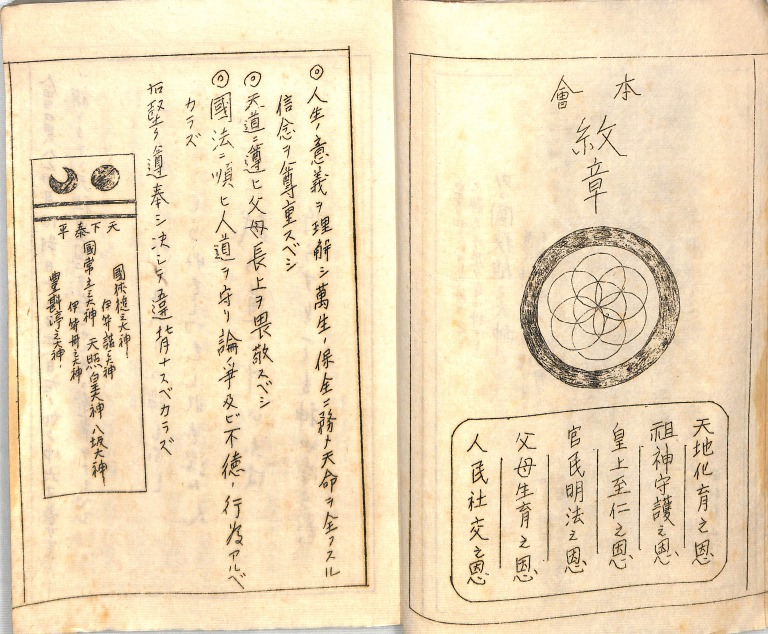 本會
紋章
天地化育之恩
祖神守護之恩
皇上至仁之恩
官民明法之恩
父母生育之恩
人民社交之恩
◎人生ノ意義ヲ理解シ萬生ノ保全ニ務メ天命ヲ全フスル
信念ヲ尊重スベシ
◎天道ニ遵ヒ父母長上ヲ畏敬スベシ
◎國法ニ順ヒ人道ヲ守リ論爭及ビ不德ノ行爲アルベ
カラズ
右堅ク遵奉シ決シテ違背ナスベカラズ
天下泰平
國狹槌之大神
伊弉諾之大神
國常立之大神 天照皇大神 八坂大神
伊弉冉之大神
豐斟渟之大神